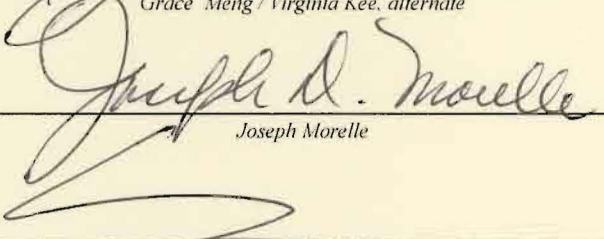 Grace Meng / Virginia Kee, alternate
Joseph D. Morelle
Joseph Morelle